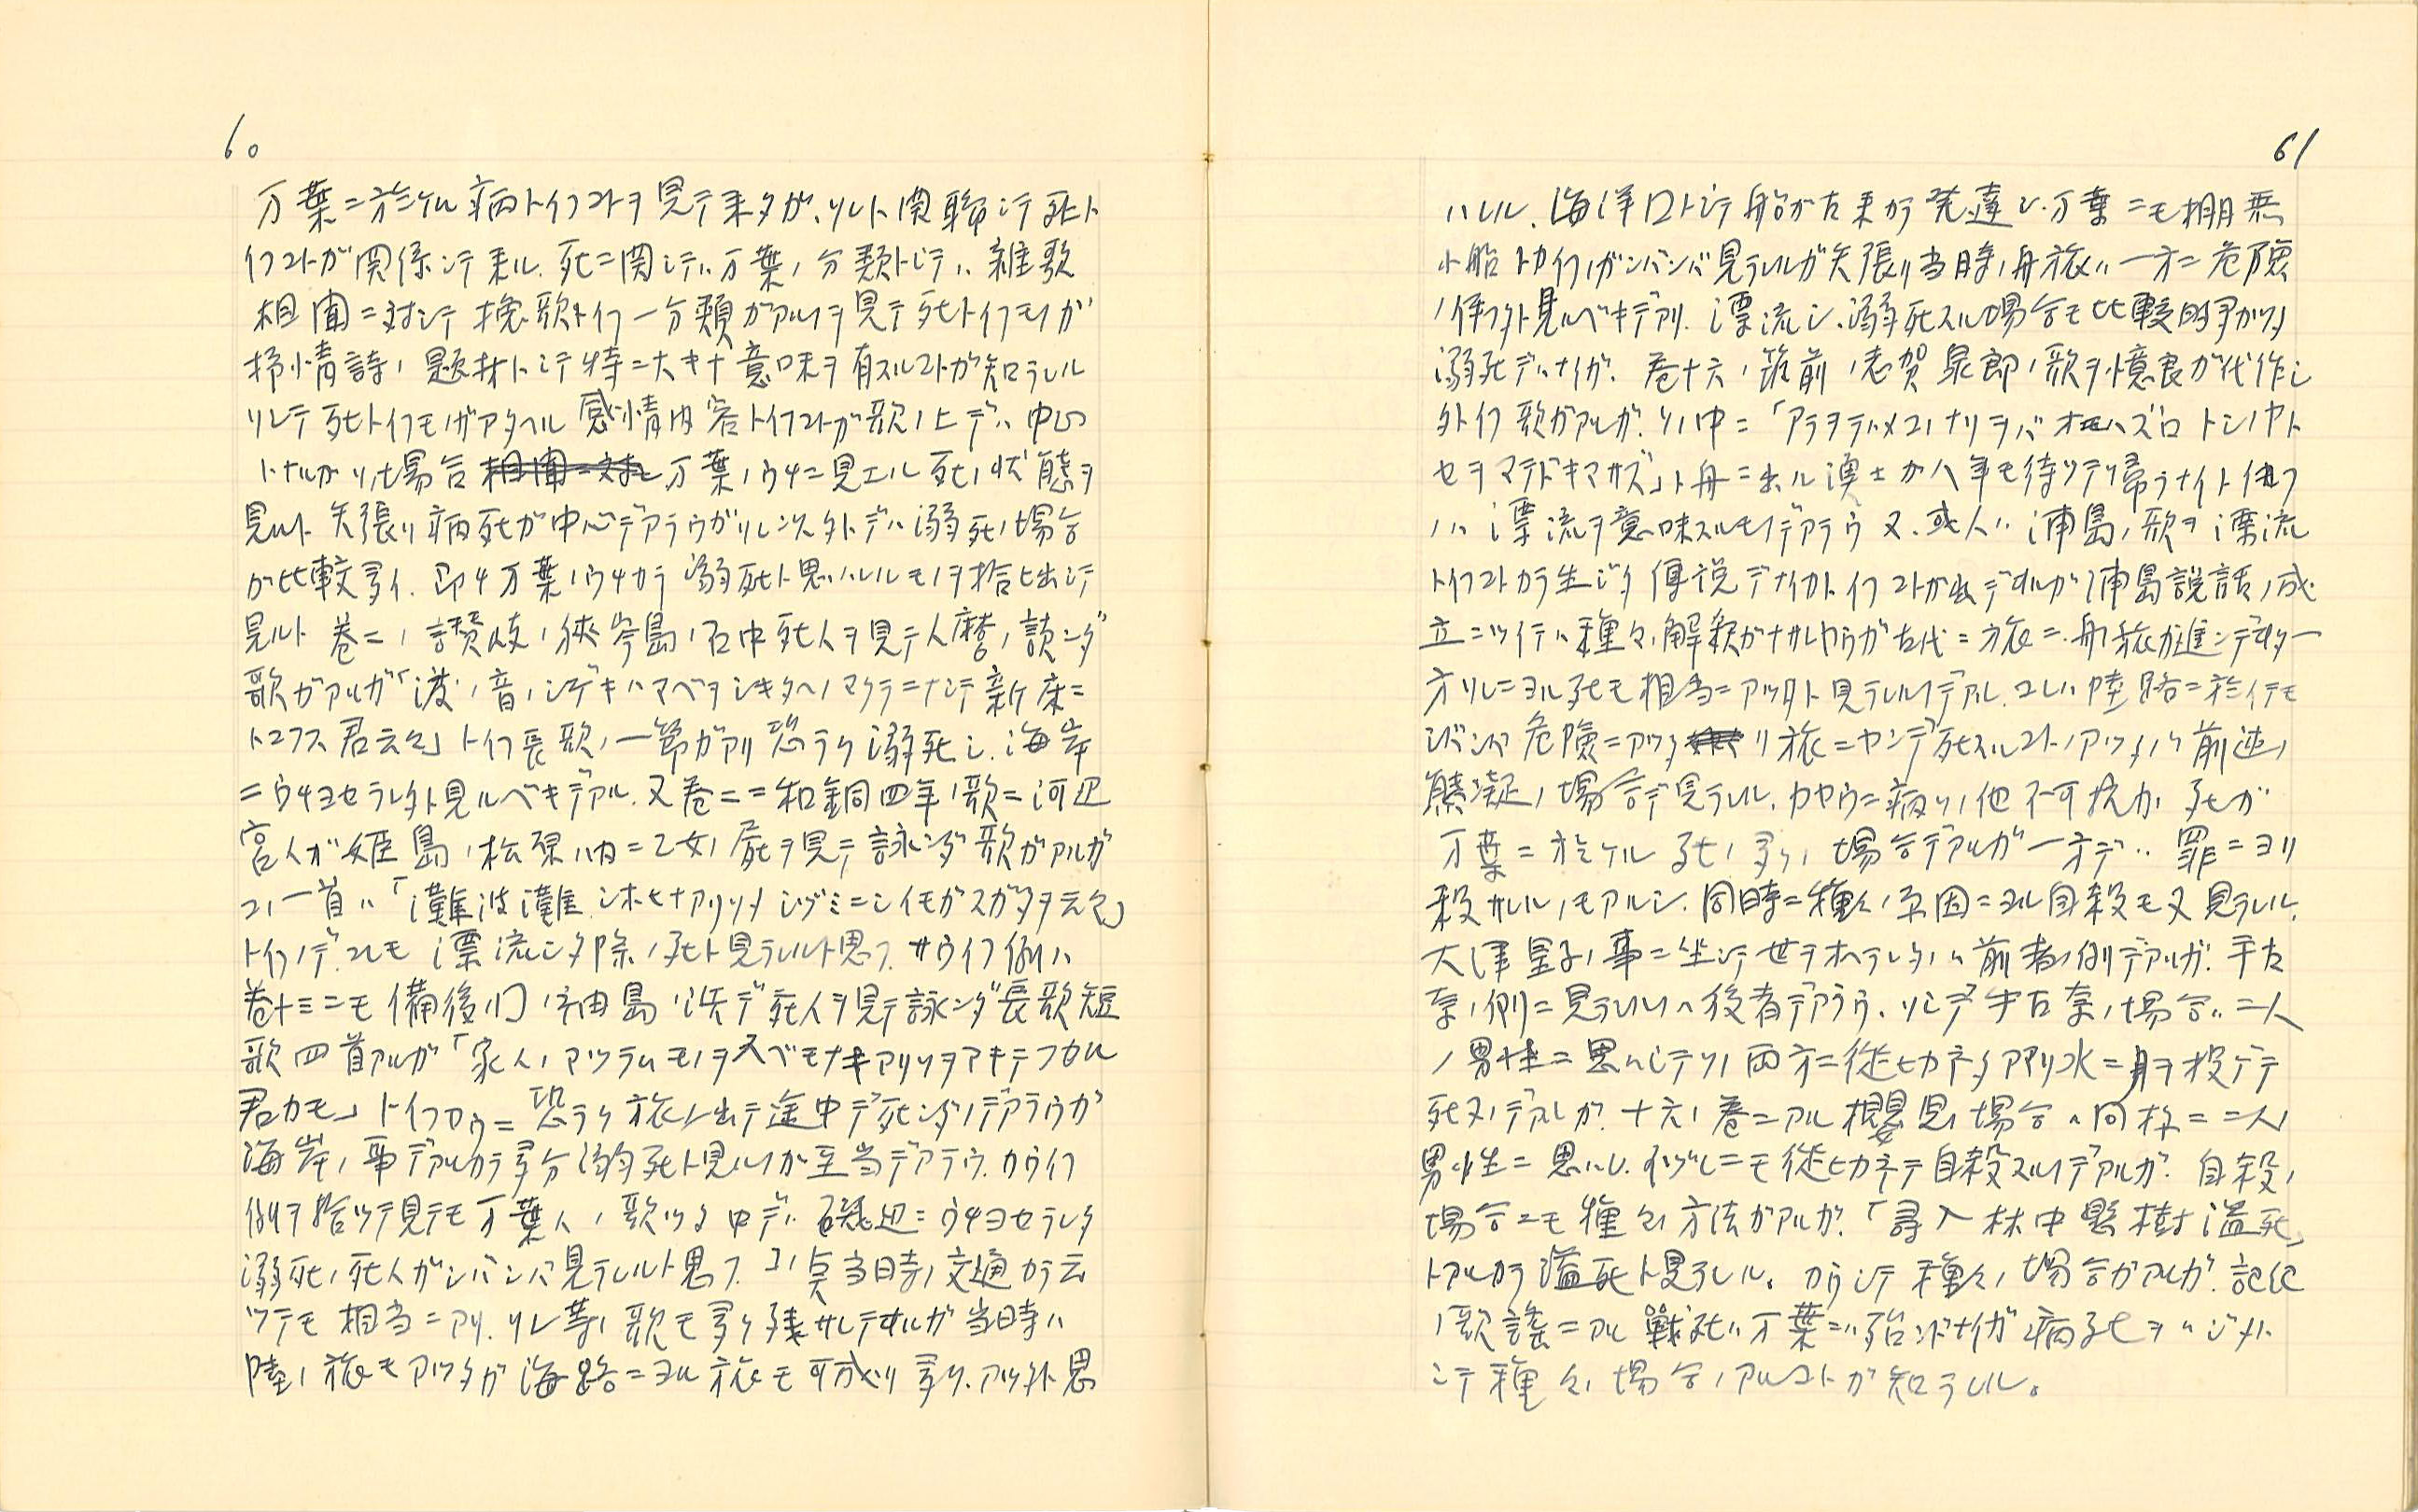 60
万葉ニ於ケル病トイフコトヲ見テ来タガ、ソレト関聯シテ死ト
イフコトガ関係シテ来ル。死ニ関シテハ万葉ノ分類トシテハ雑歌
相聞ニ対シテ挽歌トイフ一分類ガアルヲ見テ死トイフモノガ
抒情詩ノ題材トシテ特ニ大キナ意味ヲ有スルコトガ知ラレル
ソシテ死トイフモノガアタヘル感情内容トイフコトガ歌ノ上デハ中心
トナルガソノ場合相聞ニ対シ万葉ノウチニ見エル死ノ状態ヲ
見ルト矢張リ病死ガ中心デアラウガソレ以外デハ溺死ノ場合
ガ比較多イ。即チ万葉ノウチカラ溺死ト思ハレルモノヲ拾ヒ出シテ
見ルト巻二ノ讃岐ノ狭岑島ノ石中死人ヲ見テ人麿ノ読ンダ
歌ガアルガ「浪ノ音ノシゲキハマベヲシキタヘノマクラニナシテ新床ニ
トコフス君云々」トイフ長歌ノ一節ガアリ恐ラク溺死シ、海岸
ニウチヨセラレタト見ルベキデアル。又巻二ニ和銅四年ノ歌ニ河辺
宮人ガ姫島ノ松原ノ内ニ乙女ノ屍ヲ見テ詠ンダ歌ガアルガ
コノ一首ハ「難波潟シホヒナアリソネシヅミニシイモガスガタヲ云々」
トイフノデコレモ漂流シタ際ノ死ト見ラレルト思フ。サウイフ例ハ
巻十三ニモ備後ノ神島ノ浜デ死人ヲ見テ詠ンダ長歌短
歌四首アルガ「家人ノマツラムモノヲスベモナキアリソヲマキテフセル
君カモ」トイフヤウニ恐ラク旅ニ出テ途中デ死ンダノデアラウガ
海岸ノ事デアルカラ多分溺死ト見ルノガ至当デアラウ。カウイフ
例ヲ拾ツテ見テモ万葉人ノ歌ツタ中デハ磯辺ニウチヨセラレタ
溺死ノ死人ガシバシバ見ラレルト思フ。コノ点当時ノ交通カラ云
ツテモ相当ニアリ、ソレ等ノ歌モ多ク残サレテオルガ当時ハ
陸ノ旅モアツタガ海路ニヨル旅モ可成リ多ク、アツタト思
61
ハレル。海洋国トシテ船ガ古来カラ発達シ、万葉ニモ棚無
小船トカイフノガシバシバ見ラレルガ矢張リ当時ノ舟旅ハ一方ニ危険
ノ伴フタト見ルベキデアリ、漂流シ、溺死スル場合モ比較的多カツタ
溺死デハナイガ、巻十六ノ筑前ノ志賀泉郎ノ歌ヲ憶良ガ代作シ
タトイフ歌ガアルガ、ソノ中ニ「アラヲラハメコノナリヲバオモハズロトシノヤト
セヲマテドキマサズ」ト舟ニ出ル漁士ガ八年モ待ツテモ帰ラナイト伝フ
ノハ漂流ヲ意味スルモノデアラウ又、或人ハ浦島ノ歌ヲ漂流
トイフコトカラ生ジタ傳説デナイカトイフコトガ出デオルガ浦島説話ノ成
立ニツイテハ種々ノ解釈ガナサレヤウガ古代ニ旅ニ、舟旅ガ進ンデオタ一
方ソレニヨル死モ相当ニアツタト見ラレルノデアル。コレハ陸路ニ於イテモ
シバシバ危険ニアツタリ旅ニヤンデ死スルコトノアツタノハ前述ノ
熊凝ノ場合デ見ラレル。カヤウニ病ソノ他不可抗カノ死ガ
万葉ニ於ケル死ノ多クノ場合デアルガ一方デハ罪ニヨリ
殺サレルノモアルシ、同時ニ種々ノ原因ニヨル自殺モ又見ラレル。
大津皇子ノ事ニ坐シテ世ヲオヘラレタノハ前者ノ例デアルガ、手古
奈ノ例ニ見ラレルノハ後者デアラウ、ソシテ手古奈ノ場合ハ二人
ノ男性ニ思ハレテソノ両方ニ従ヒカネタアマリ水ニ身ヲ投ゲテ
死ヌノデアルガ、十六ノ巻ニアル櫻児ノ場合ハ同様ニ二人ノ
男性ニ思ハレ、イヅレニモ従ヒカネテ自殺スルノデアルガ、自殺ノ
場合ニモ種々ノ方法ガアルガ、「尋入林中懸樹溢死」
トアルカラ溢死ト見ラレル。カウシテ種々ノ場合ガアルガ、記紀
ノ歌謡ニアル戦死ハ万葉ニハ殆ンドナイガ病死ヲハジメト
シテ種々ノ場合ノアルコトガ知ラレル。